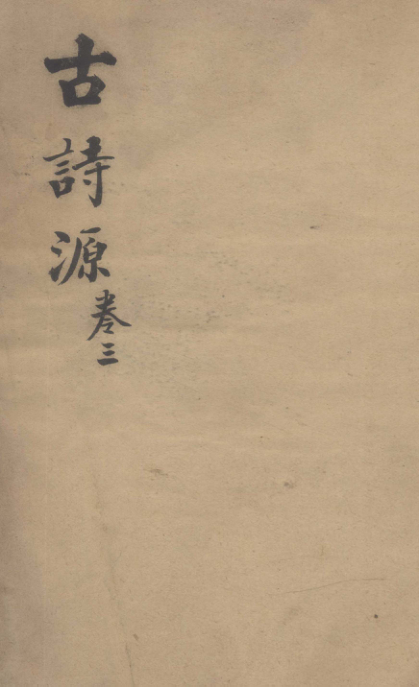 古詩源
卷三